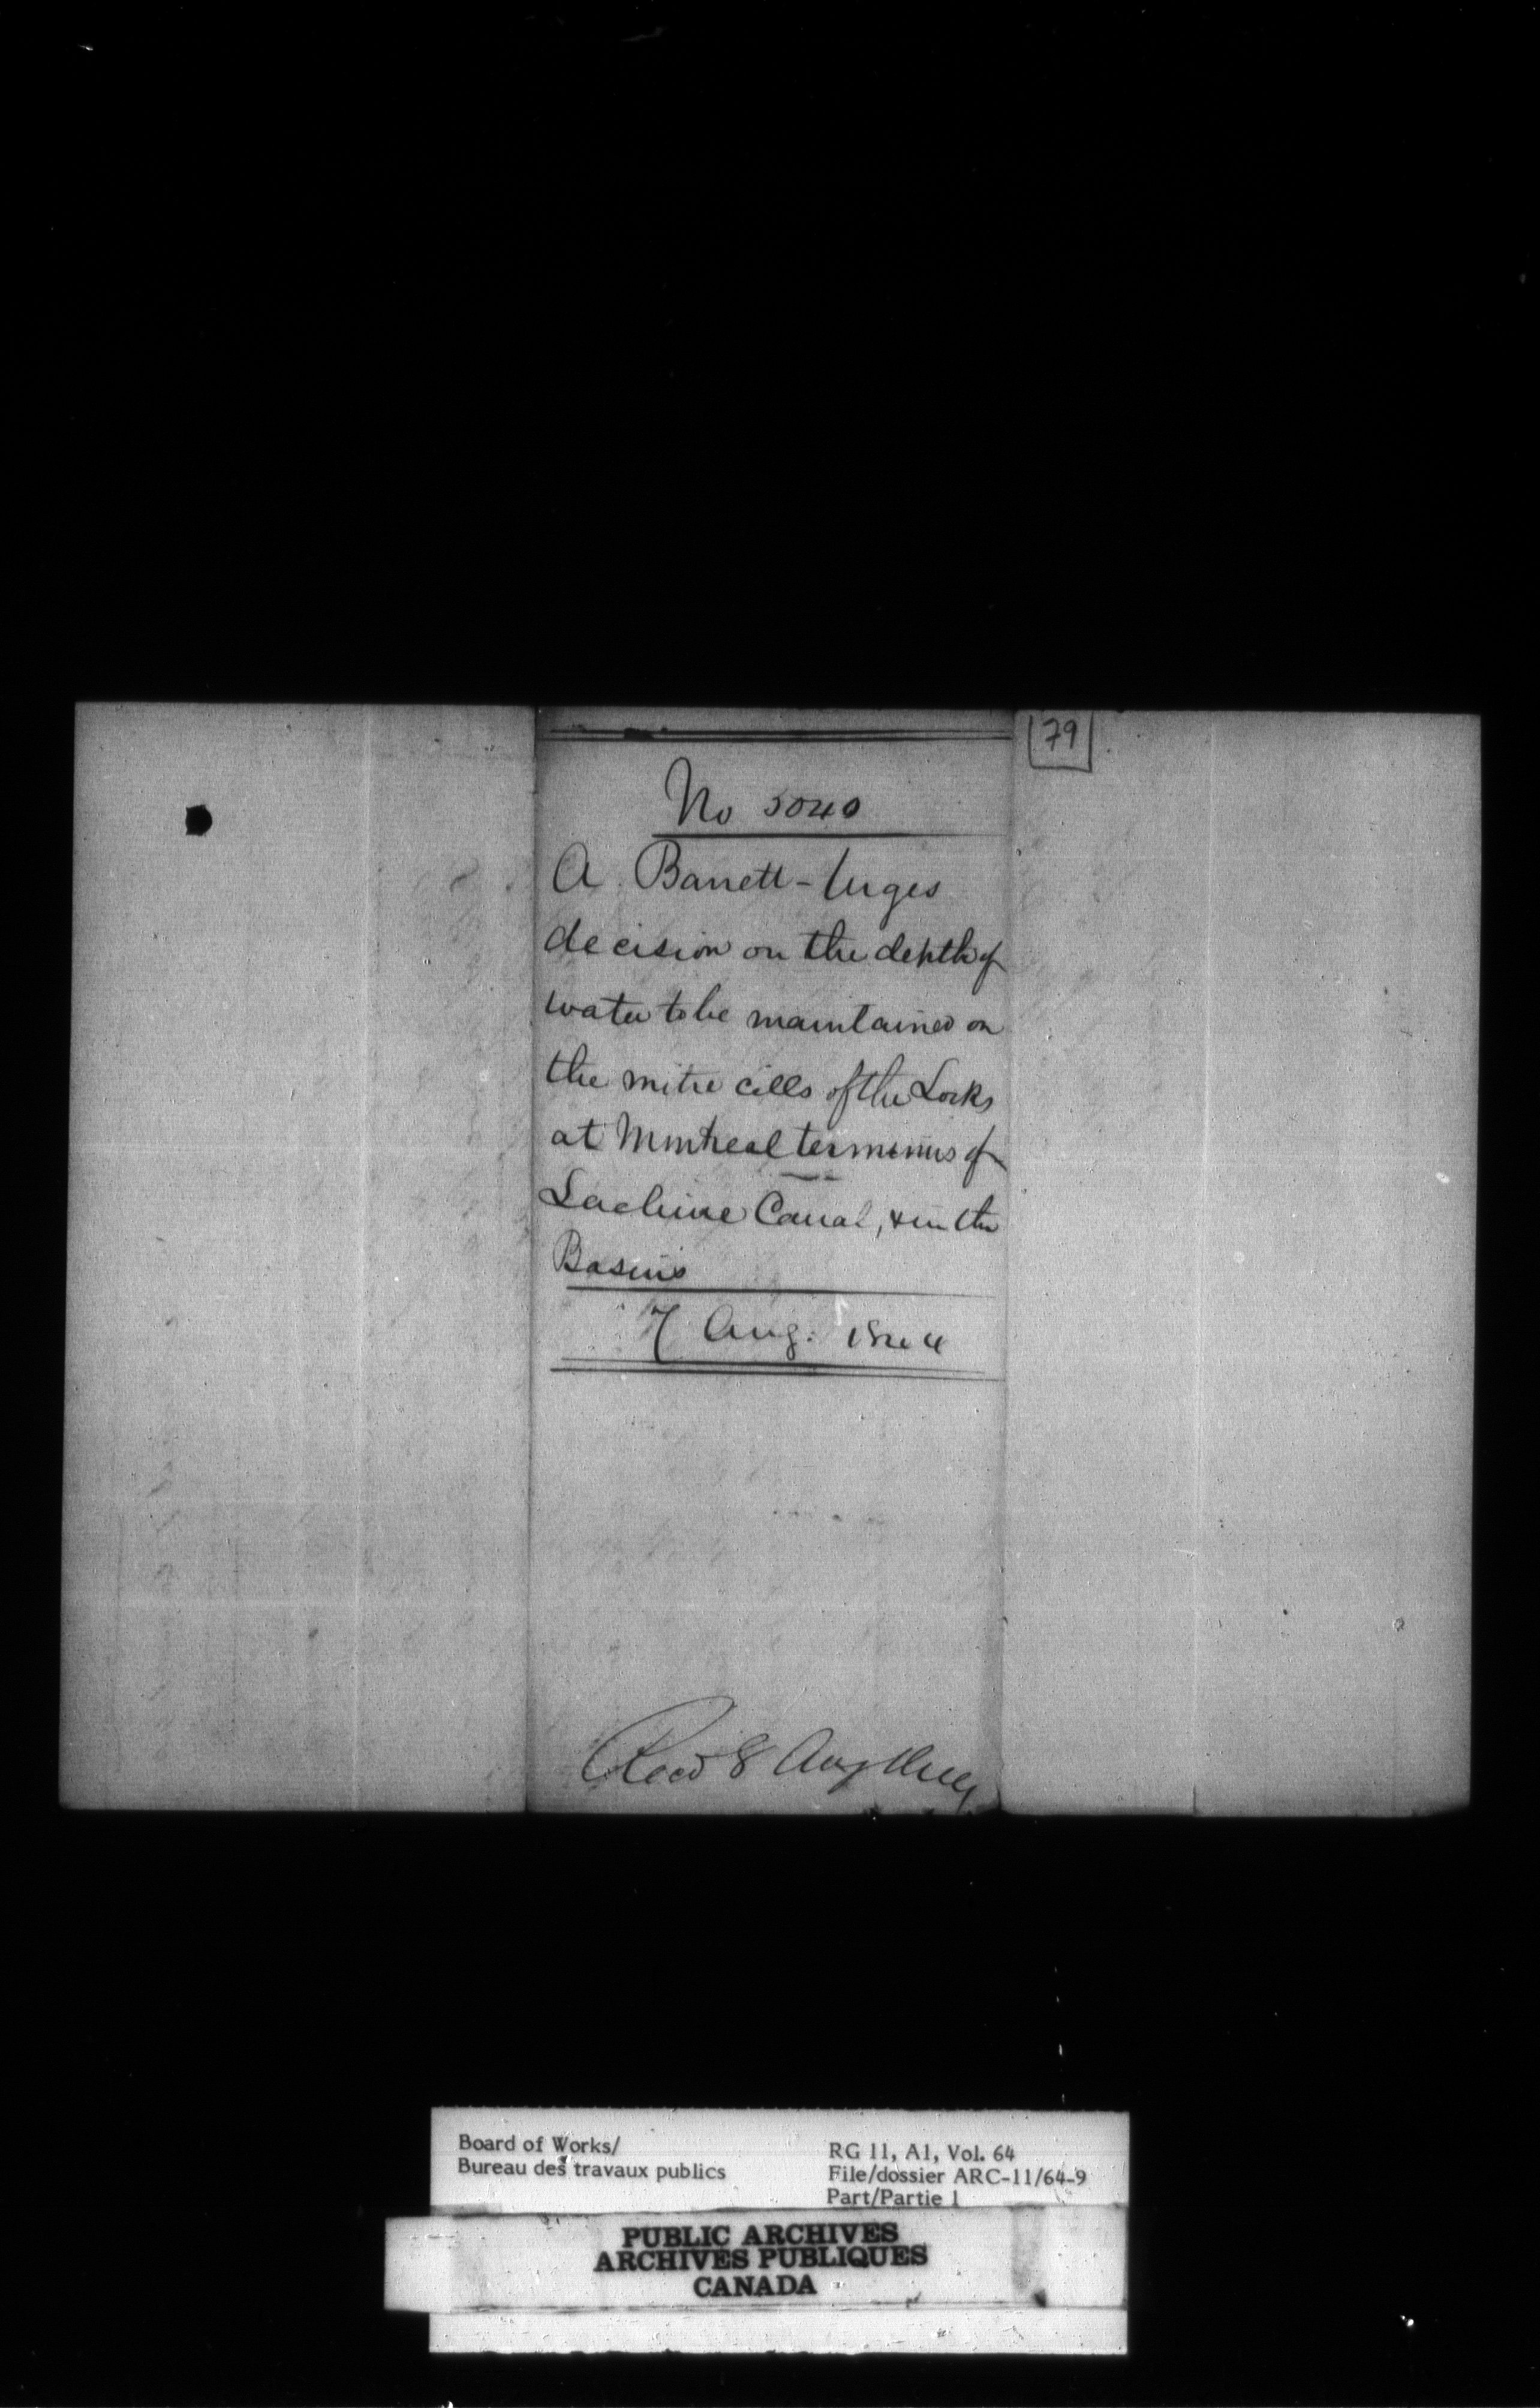 79
No 5040
A. Barrett - Urges
decision on the depth of
water to be maintained on
the mitre cills of the Locks
at Montreal terminus of
Lachine Canal, & in the
Basins
7 Aug: 1844
Recd 8 Aug
Board of Works/
Bureau des travaux publics
RG 11, A1, Vol. 64
File/dossier ARC-11/64-9
Part/Partie 1
PUBLIC ARCHIVES
ARCHIVES PUBLIQUES
CANADA